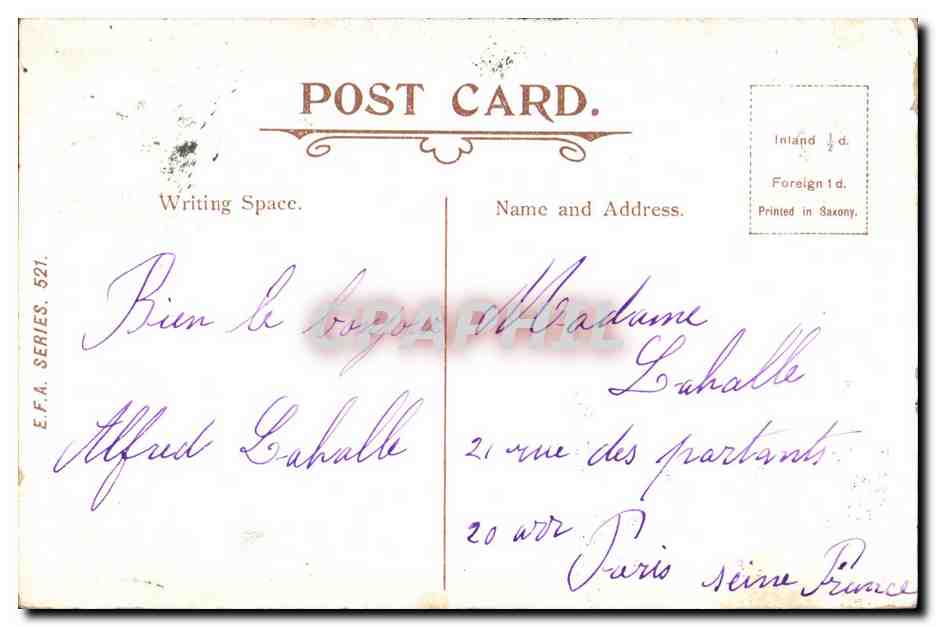 POST CARD.
Inland ½ d.
Foreign 1 d.
Printed in Saxony.
Writing Space.
Name and Address.
E.F.A. SERIES. 521.
Bien le
Alfred Lahalle
Madame
Lahalle
21 rue des partants
20 arr
Paris seine France
CPAPHIL